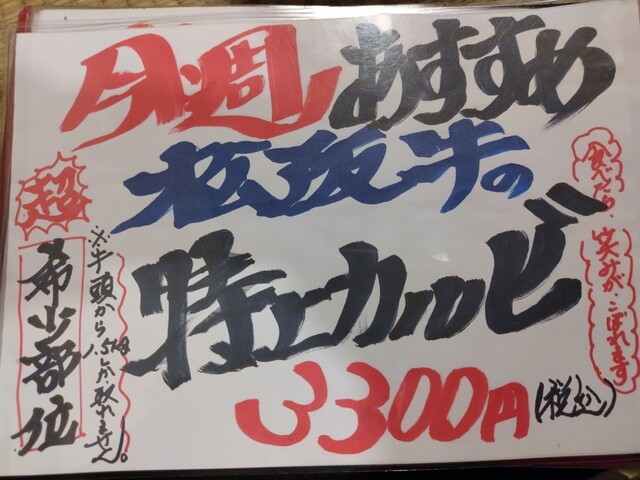 今週おすすめ
松阪牛の
特上カルビ
3300円(税込)
超
希少部位
※牛頭から1.5kgしか取れません。
食べたら、笑みがこぼれます